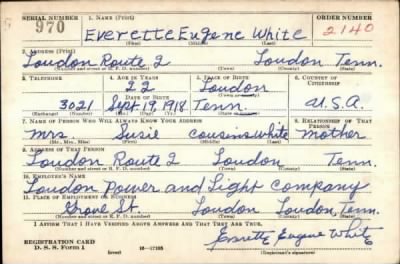 SERIAL NUMBER 1. NAME (Print) ORDER NUMBER
970 Everette Eugene White 2140
(First) (Middle) (Last)
2. ADDRESS (Print)
Loudon Route 2 Loudon Tenn.
(Number and street or R. F. D. number) (Town) (County) (State)
3. TELEPHONE 4. AGE IN YEARS 5. PLACE OF BIRTH 6. COUNTRY OF CITIZENSHIP
22 Loudon
DATE OF BIRTH (Town or county)
3021 Sept. 19, 1918 Tenn. U.S.A.
(Exchange) (Number) (Mo.) (Day) (Yr.) (State or country)
7. NAME OF PERSON WHO WILL ALWAYS KNOW YOUR ADDRESS 8. RELATIONSHIP OF THAT PERSON
Mrs Susie Cousins White Mother
(Mr., Mrs., Miss) (First) (Middle) (Last)
9. ADDRESS OF THAT PERSON
Loudon Route 2 Loudon Tenn.
(Number and street or R. F. D. number) (Town) (County) (State)
10. EMPLOYER'S NAME
Loudon Power and Light Company
11. PLACE OF EMPLOYMENT OR BUSINESS
Grove St. Loudon Loudon, Tenn.
(Number and street or R. F. D. number) (Town) (County) (State)
I AFFIRM THAT I HAVE VERIFIED ABOVE ANSWERS AND THAT THEY ARE TRUE.
REGISTRATION CARD
D. S. S. Form 1 16-17105 Everette Eugene White
(over) (Registrant's signature)